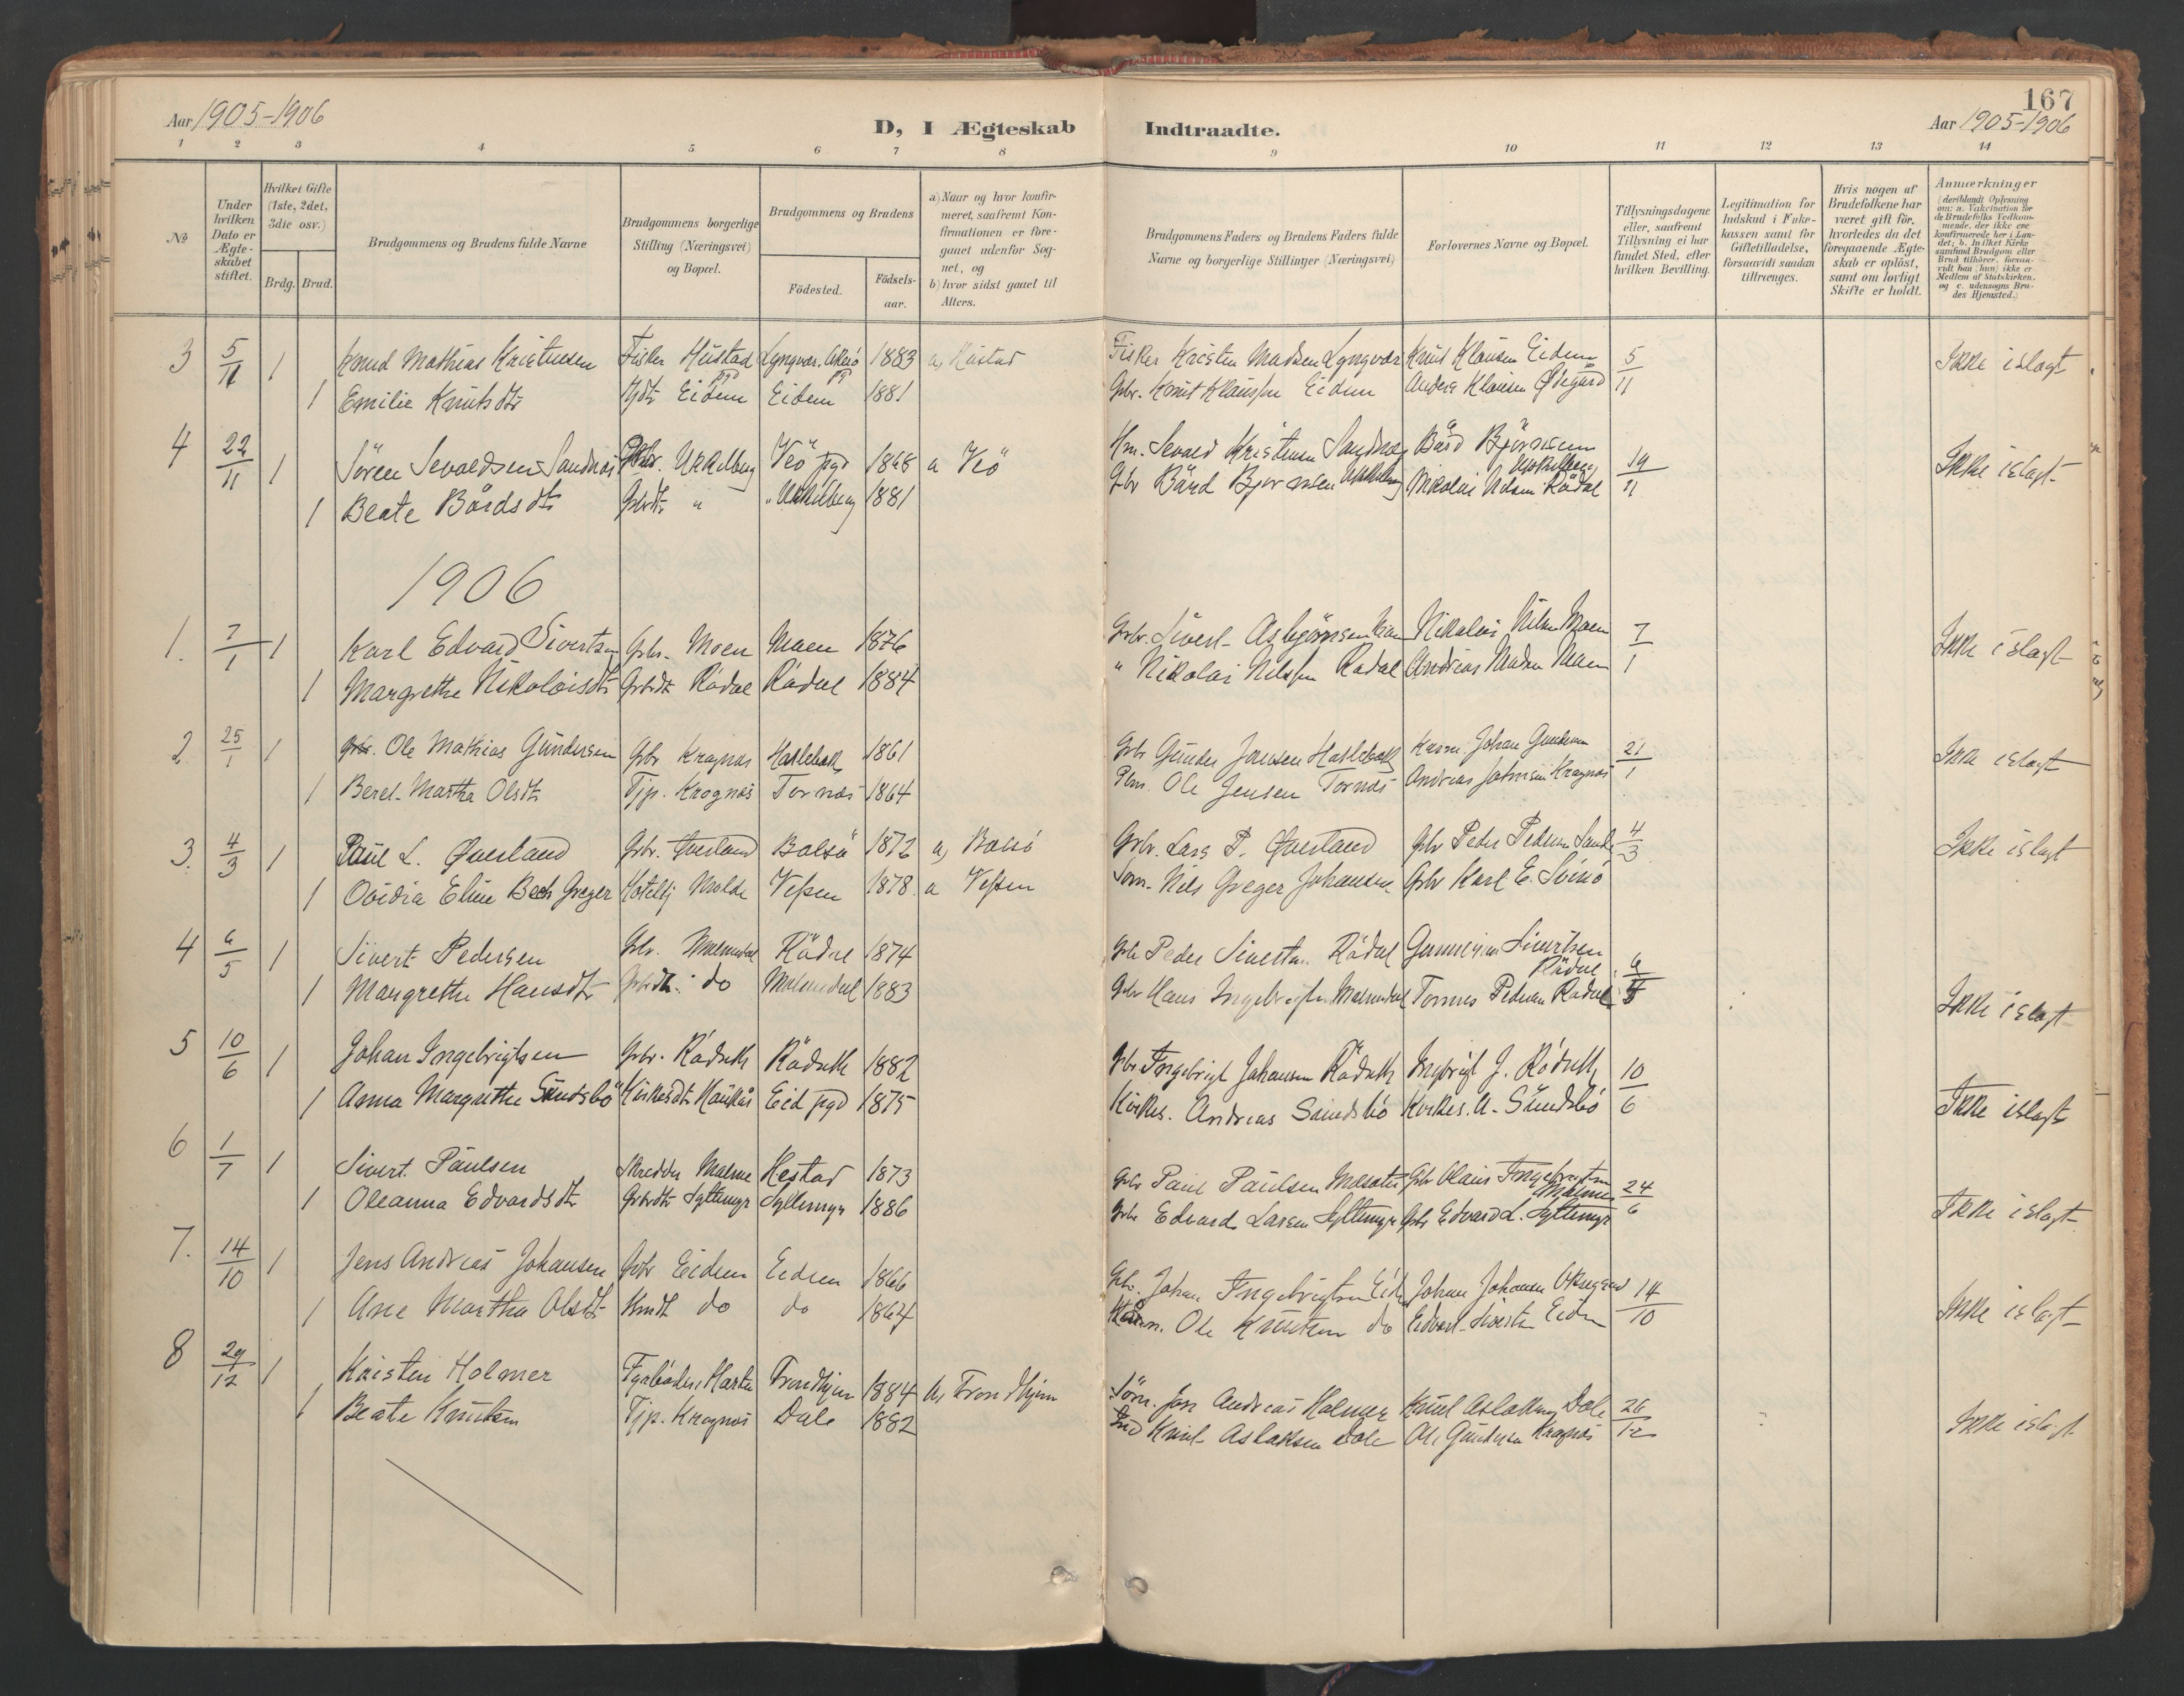 167
Aar 1905-1906
D, I Ægteskab Indtraadte.
Aar 1905-1906
1 2 3 4 5 6 7 8 9 10 11 12 13 14
No
Under hvilken Dato er Ægteskabet stiftet.
Hvilket Gifte (1ste, 2det, 3die osv.)
Brdg. Brud.
Brudgommens og Brudens fulde Navne
Brudgommens borgerlige Stilling (Næringsvei) og Bopæl.
Brudgommens og Brudens
Födested.
Födsels-aar.
a) Naar og hvor konfirmeret, saafremt Konfirmationen er foregaaet udenfor Sognet, og
b) hvor sidst gaaet til Alters.
Brudgommens Faders og Brudens Faders fulde Navne og borgerlige Stillinger (Næringsvei)
Forlovernes Navne og Bopæl.
Tillysningsdagene eller, saafremt Tillysning ei har fundet Sted, efter hvilken Bevilling.
Legitimation for Indskud i Enkekassen samt for Giftetilladelse, forsaavidt saadan tiltrænges.
Hvis nogen af Brudefolkene har været gift för, hvorledes da det foregaaende Ægteskab er oplöst, samt om lovligt Skifte er holdt.
Anmærkninger
3 5/11 1 Knud Mathias Kristensen Fisker Hustad pgd Lyngvær. Akerö pg 1883 a, Hustad Fisker Kristen Madsen Lyngvær Knut Klausen Eidem 5/11 Ikke i slægt
1 Emilie Knutsdtr Eidem Eidem 1881 Gbr. Knut Klaussen Eidem Anders Klausen Ødegård
4 22/11 1 Sören Sevaldsen Sandnæs Ukkelberg Veö pgd 1868 a Veö Sevald Kristensen Sandnæs Bård Björnsen Ukkelberg 19/11 Ikke i slægt
1 Beate Bårdsdtr Gbrdtr " Ukkelberg 1881 Gbr Bård Bjørnsen Ukkelberg Nikolai Nilsen Rådal
1906
1. 7/1 1 Karl Edvard Sivertsen Gbr. Moen Moen 1876 Gbr. Sivert Asbjørnsen Nikolai Nilsen Moen 7/1 Ikke i slægt
1 Margrethe Nikolaisdtr Gbrdtr Rådal Rådal 1884 " Nikolai Nilssen Rådal Andreas Madsen Moen
2 25/1 1 Ole Mathias Gundersen Gbr Kragnæs Haslebak 1861 Gbr Gunder Jonsen Haslebak Johan Gundersen 21/1 Ikke i slægt
1 Beret Martha Olsdtr Tjp. Kragnæs Tornæs 1864 Ole Jensen Tornæs Andreas Johnsen Kragnæs
3. 4/3 1 Paul L. Øverland Gbr. Øverland Bolsö 1872 a, Bolsö Gbr. Lars P. Øverland Gbr Peder Pedersen 4/3 Ikke i slægt
1 Ovidia Eline Bech Greger Molde Vefsen 1878. a Vefsen Nils Greger Johansen Gbr Karl E. Svinö
4 6/5 1 Sivert Pedersen Gbr. Malmedal Rådal 1874 Gbr Peder Sivertsen Rådal Sivertsen Rådal 6/5
1 Margrethe Hansdtr Gbrdtr. do Malmedal 1883 Gbr Hans Ingebrigtsen Malmedal Pedersen Rådal Ikke i slægt
5 10/6 1 Johan Ingebrigtsen Gbr. 1882 Gbr Ingebrigt Johansen Ingebrigt J. 10/6
1 Anna Margrethe Sundsbö Eid pgd 1875 Kirkes. Andreas Sundsbö Kirkes. A. Sundsbö Ikke i slægt
6 1/7 1 Sivert Paulsen Skredder Malme Hestad 1873 Gbr Paul Paulsen Gbr Olaus Ingebrigtsen Malme 24/6
1 Oleanna Edvardsdtr Gbrdtr Syltemyr Syltemyr 1886 Gbr Edvard Larsen Syltemyr Gbr Edvard L. Syltemyr Ikke i slægt
7. 14/10 1 Jens Andreas Johansen Gbr Eidem Eidem 1866 Gbr. Johan Ingebrigtsen Eidem Johan Johansen 14/10
1 Ane Martha Olsdtr do do 1864 Ole Knutsen do Edvard Sivertsen Eidem Ikke i slægt
8 29/12 1 Kristen Holmer Trondhjem 1884 a, Trondhjem Jon Andreas Holmer Knut Aslaksen Dale 26/12
1 Beate Knutsen Tjp. Kragnæs Dale 1882 Knut Aslaksen Dale Ole Gundersen Kragnæs Ikke i slægt